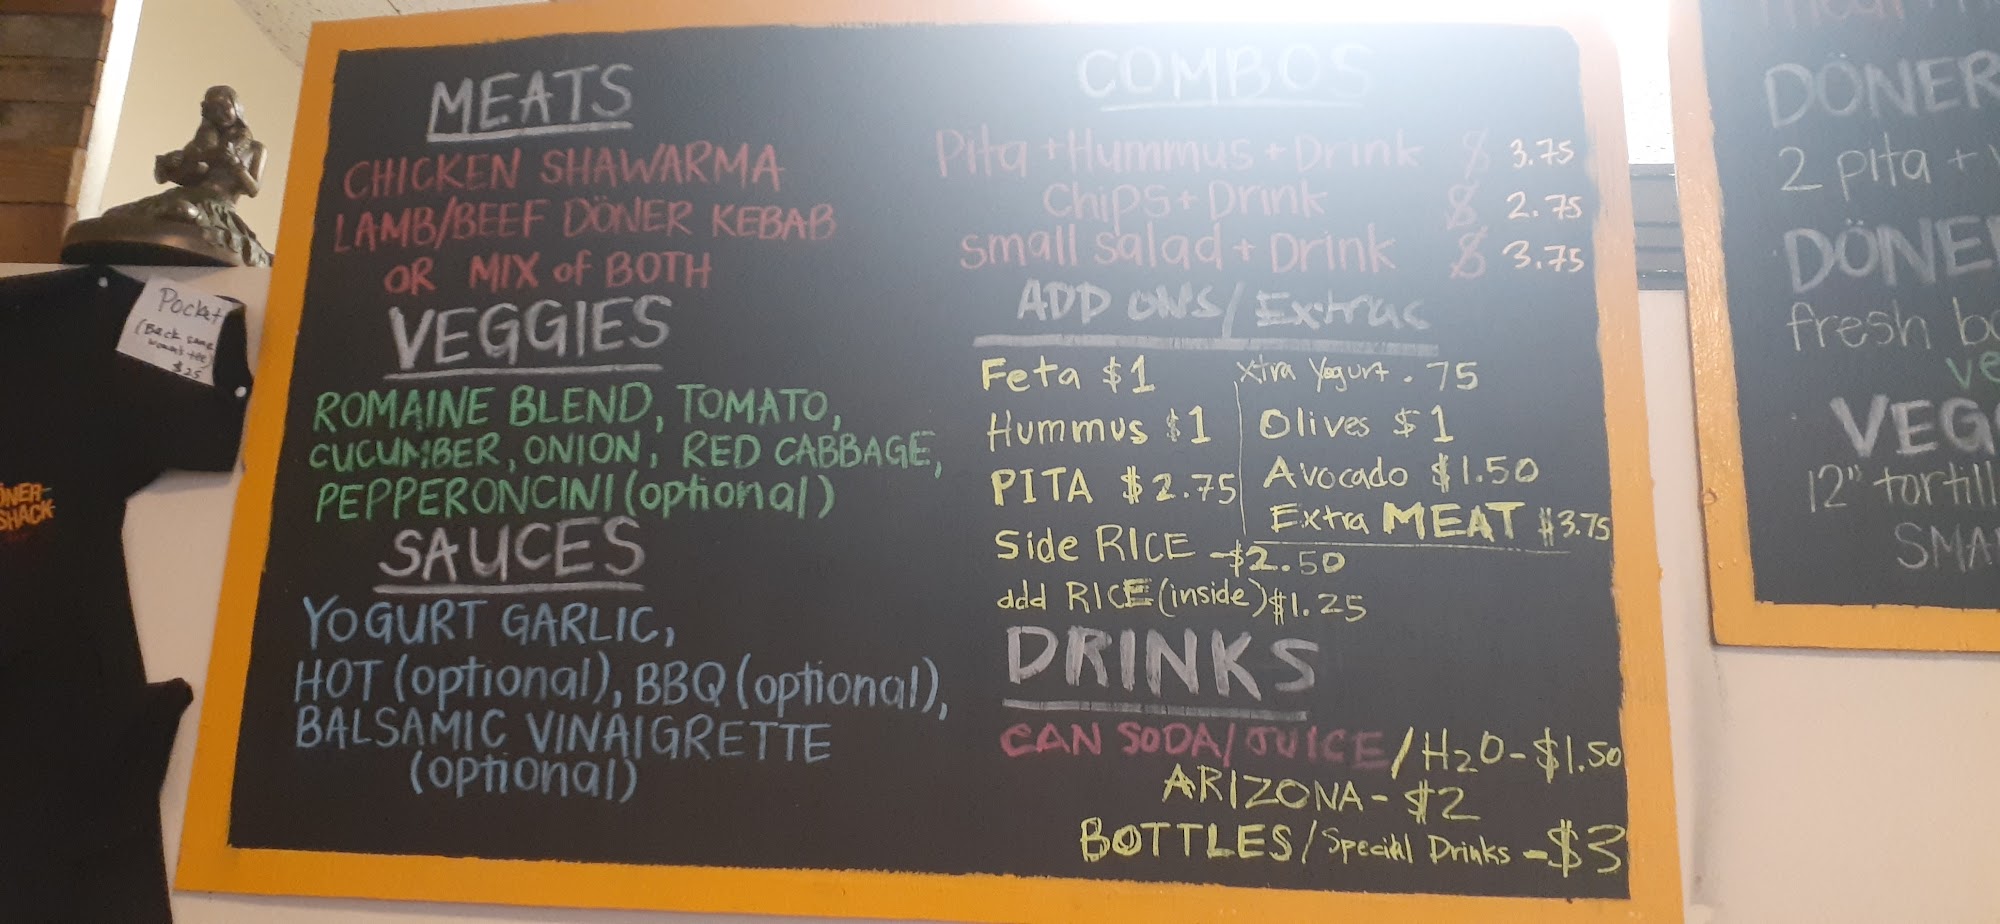 MEATS
CHICKEN SHAWARMA
LAMB/BEEF DÖNER KEBAB
OR MIX of BOTH
VEGGIES
ROMAINE BLEND, TOMATO,
CUCUMBER, ONION, RED CABBAGE,
PEPPERONCINI (optional)
SAUCES
YOGURT GARLIC,
HOT (optional), BBQ (optional),
BALSAMIC VINAIGRETTE
(optional)
COMBOS
Pita + Hummus + Drink $ 3.75
Chips + Drink $ 2.75
Small Salad + Drink $ 3.75
ADD ONS/Extras
Feta $1
Hummus $1
PITA $2.75
Side RICE - $2.50
add RICE (inside) $1.25
Xtra Yogurt .75
Olives $1
Avocado $1.50
Extra MEAT $3.75
DRINKS
CAN SODA/JUICE/H2O - $1.50
ARIZONA - $2
BOTTLES/Special Drinks - $3
Pocket
(Back same
$25
SHACK
DÖNER
2 pita +
fresh
12" tortill